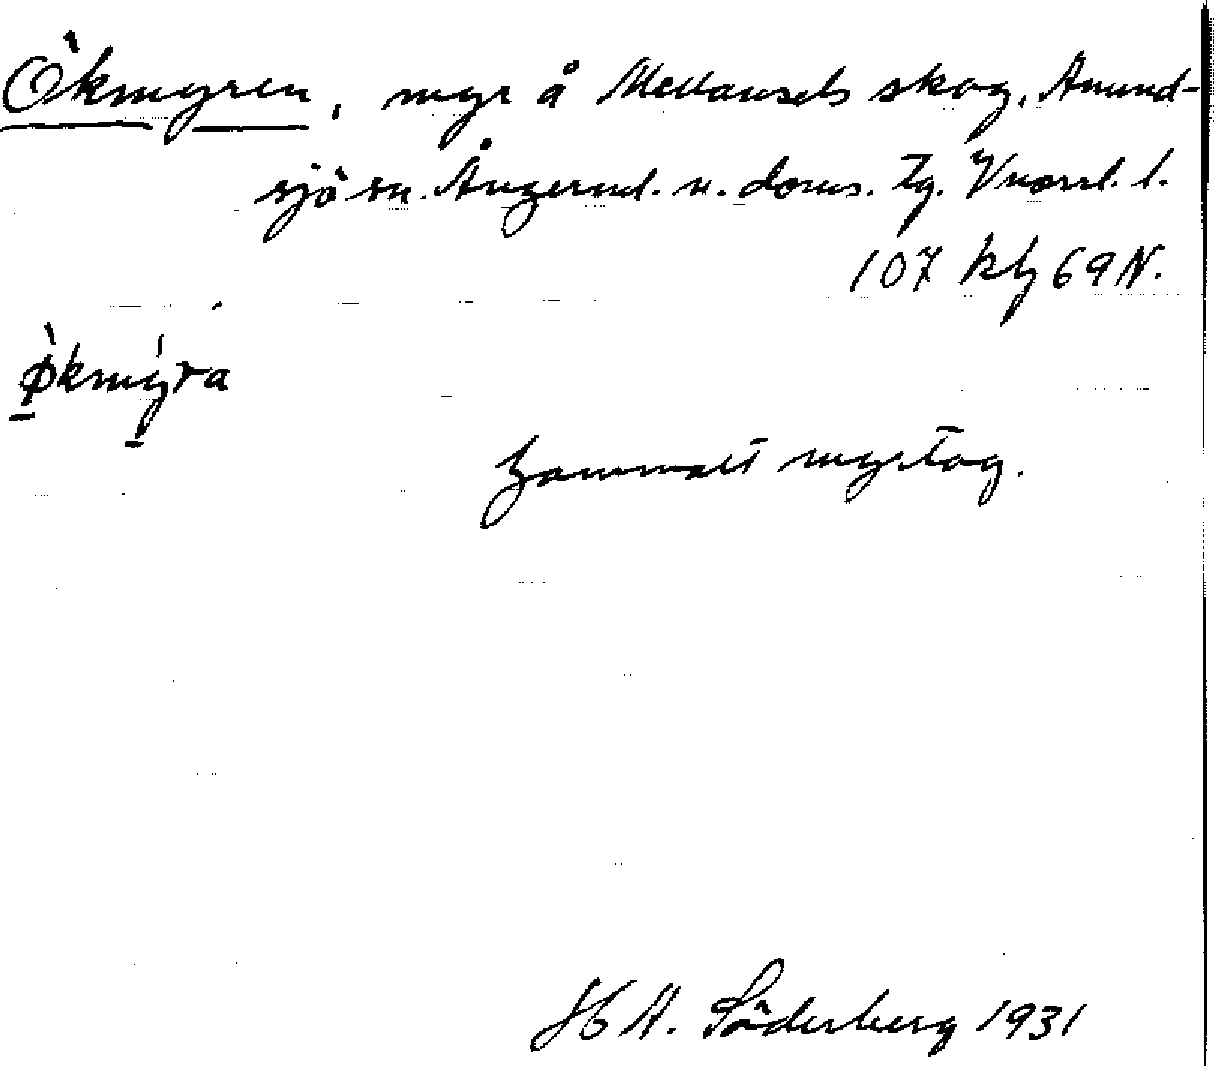 Ökmyren, myr å Mellansels skog, Anund-
sjö sn. Ångerml. n. doms. Tg. Vnorrl. l.
107 kbl 69 N.
økmyra
Gammalt myrtag.
H A. Söderberg 1931